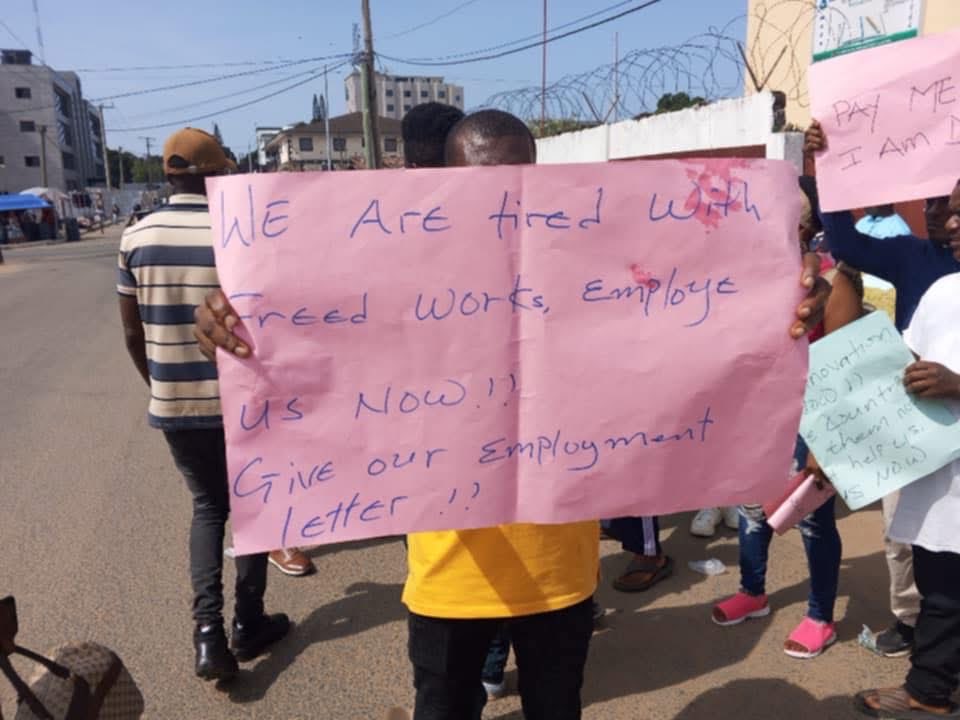 WE Are tired with
Freed works, Employe
us NOW!!
Give our Employment
letter !!
PAY ME
I AM
NOW
them
help us!
us NOW